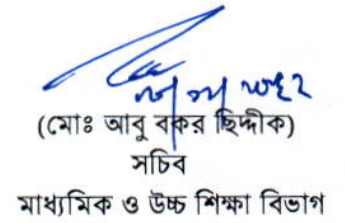 (মোঃ আবু বকর ছিদ্দীক)
সচিব
মাধ্যমিক ও উচ্চ শিক্ষা বিভাগ